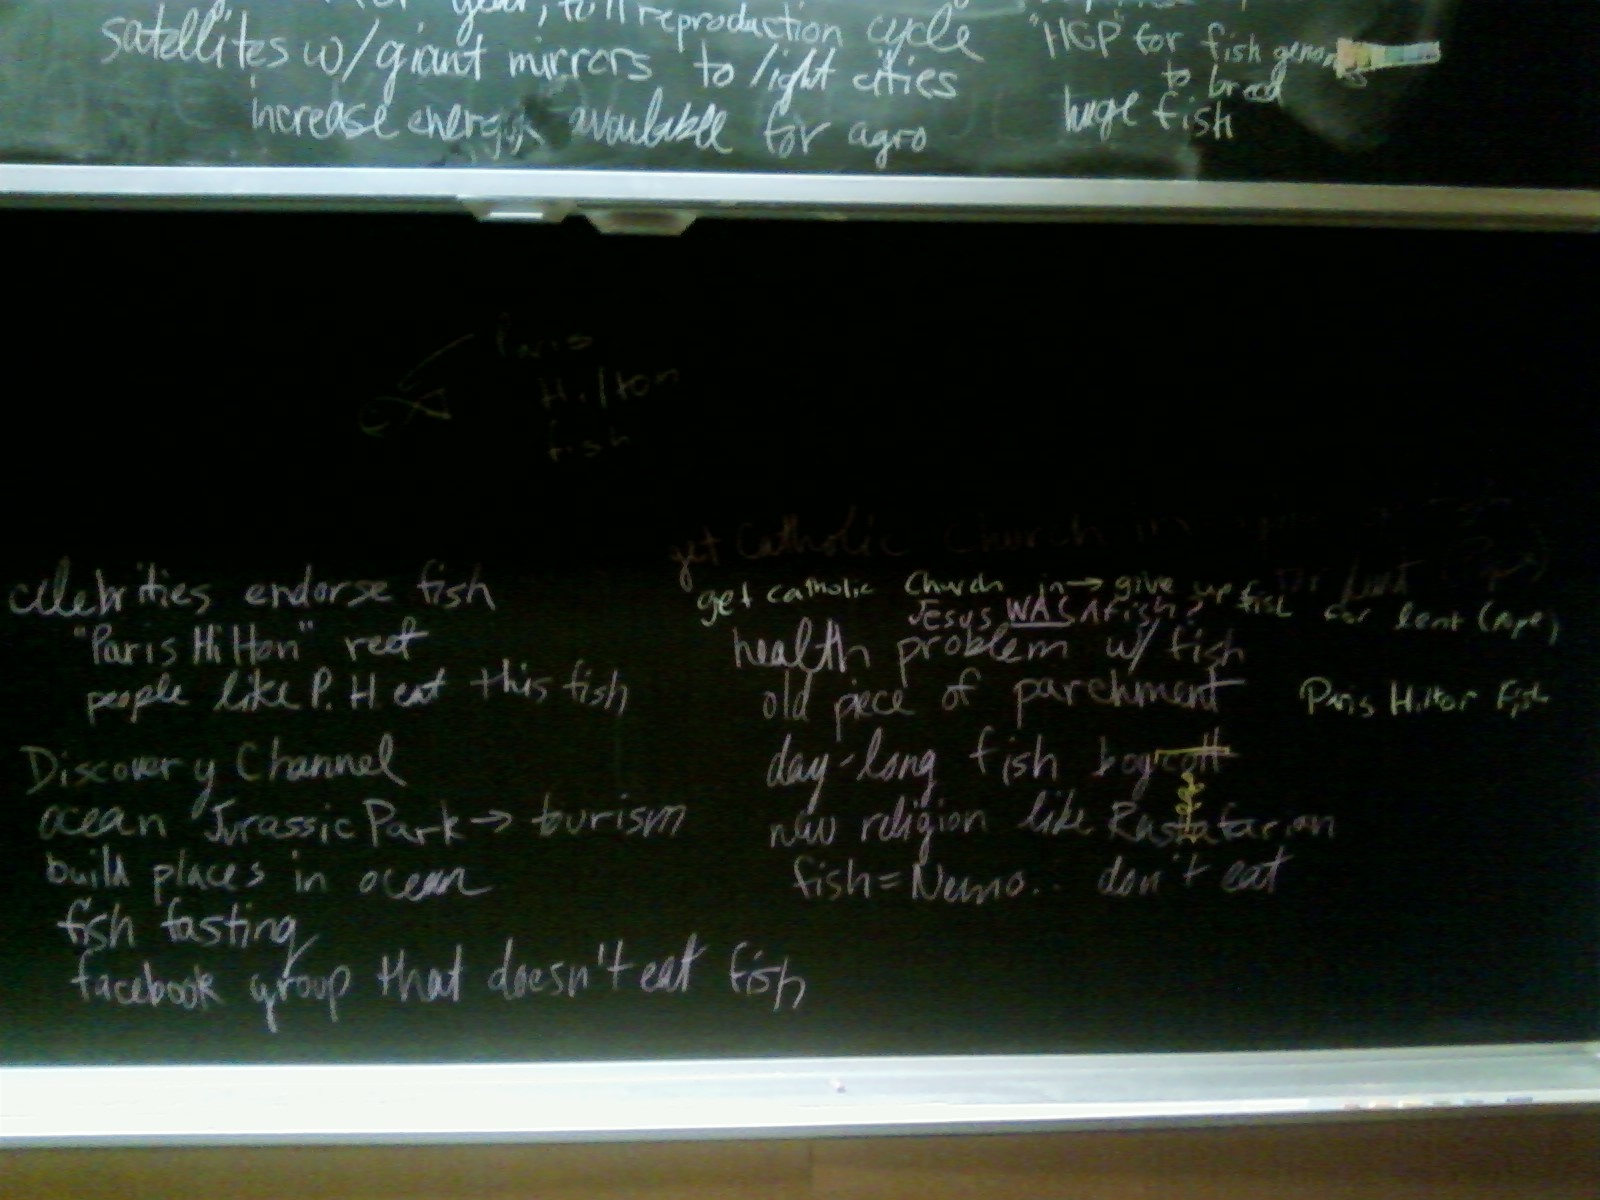 year, full reproduction cycle
satellites w/giant mirrors to light cities
increase energy available for agro
"HGP" for fish genomes
to breed
huge fish
Paris
Hilton
fish
celebrities endorse fish
"Paris Hilton" reef
people like P.H. eat this fish
Discovery Channel
ocean Jurassic Park → tourism
build places in ocean
fish fasting
facebook group that doesn't eat fish
get Catholic Church in
for Lent (Pope)
get catholic Church in → give up fish for lent (Pope)
Jesus WAS A fish?
health problem w/ fish
old piece of parchment
Paris Hilton Fish
day-long fish boycott
new religion like Rastafarian
fish = Nemo.. don't eat